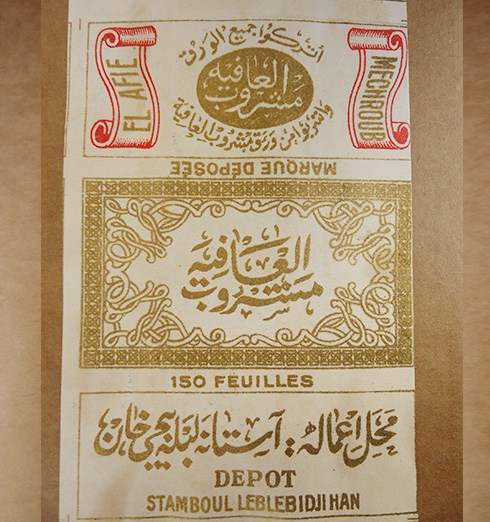 اتركوا جميع الورق
EL AFIE
العافيه
مشروب
MECHROUB
واشربوا من ورق مشروب العافية
MARQUE DÉPOSÉE
العافيه
مشروب
150 FEUILLES
محل اعماله: آستانه لبلبه يجى خان
DEPOT
STAMBOUL LEBLEBIDJI HAN